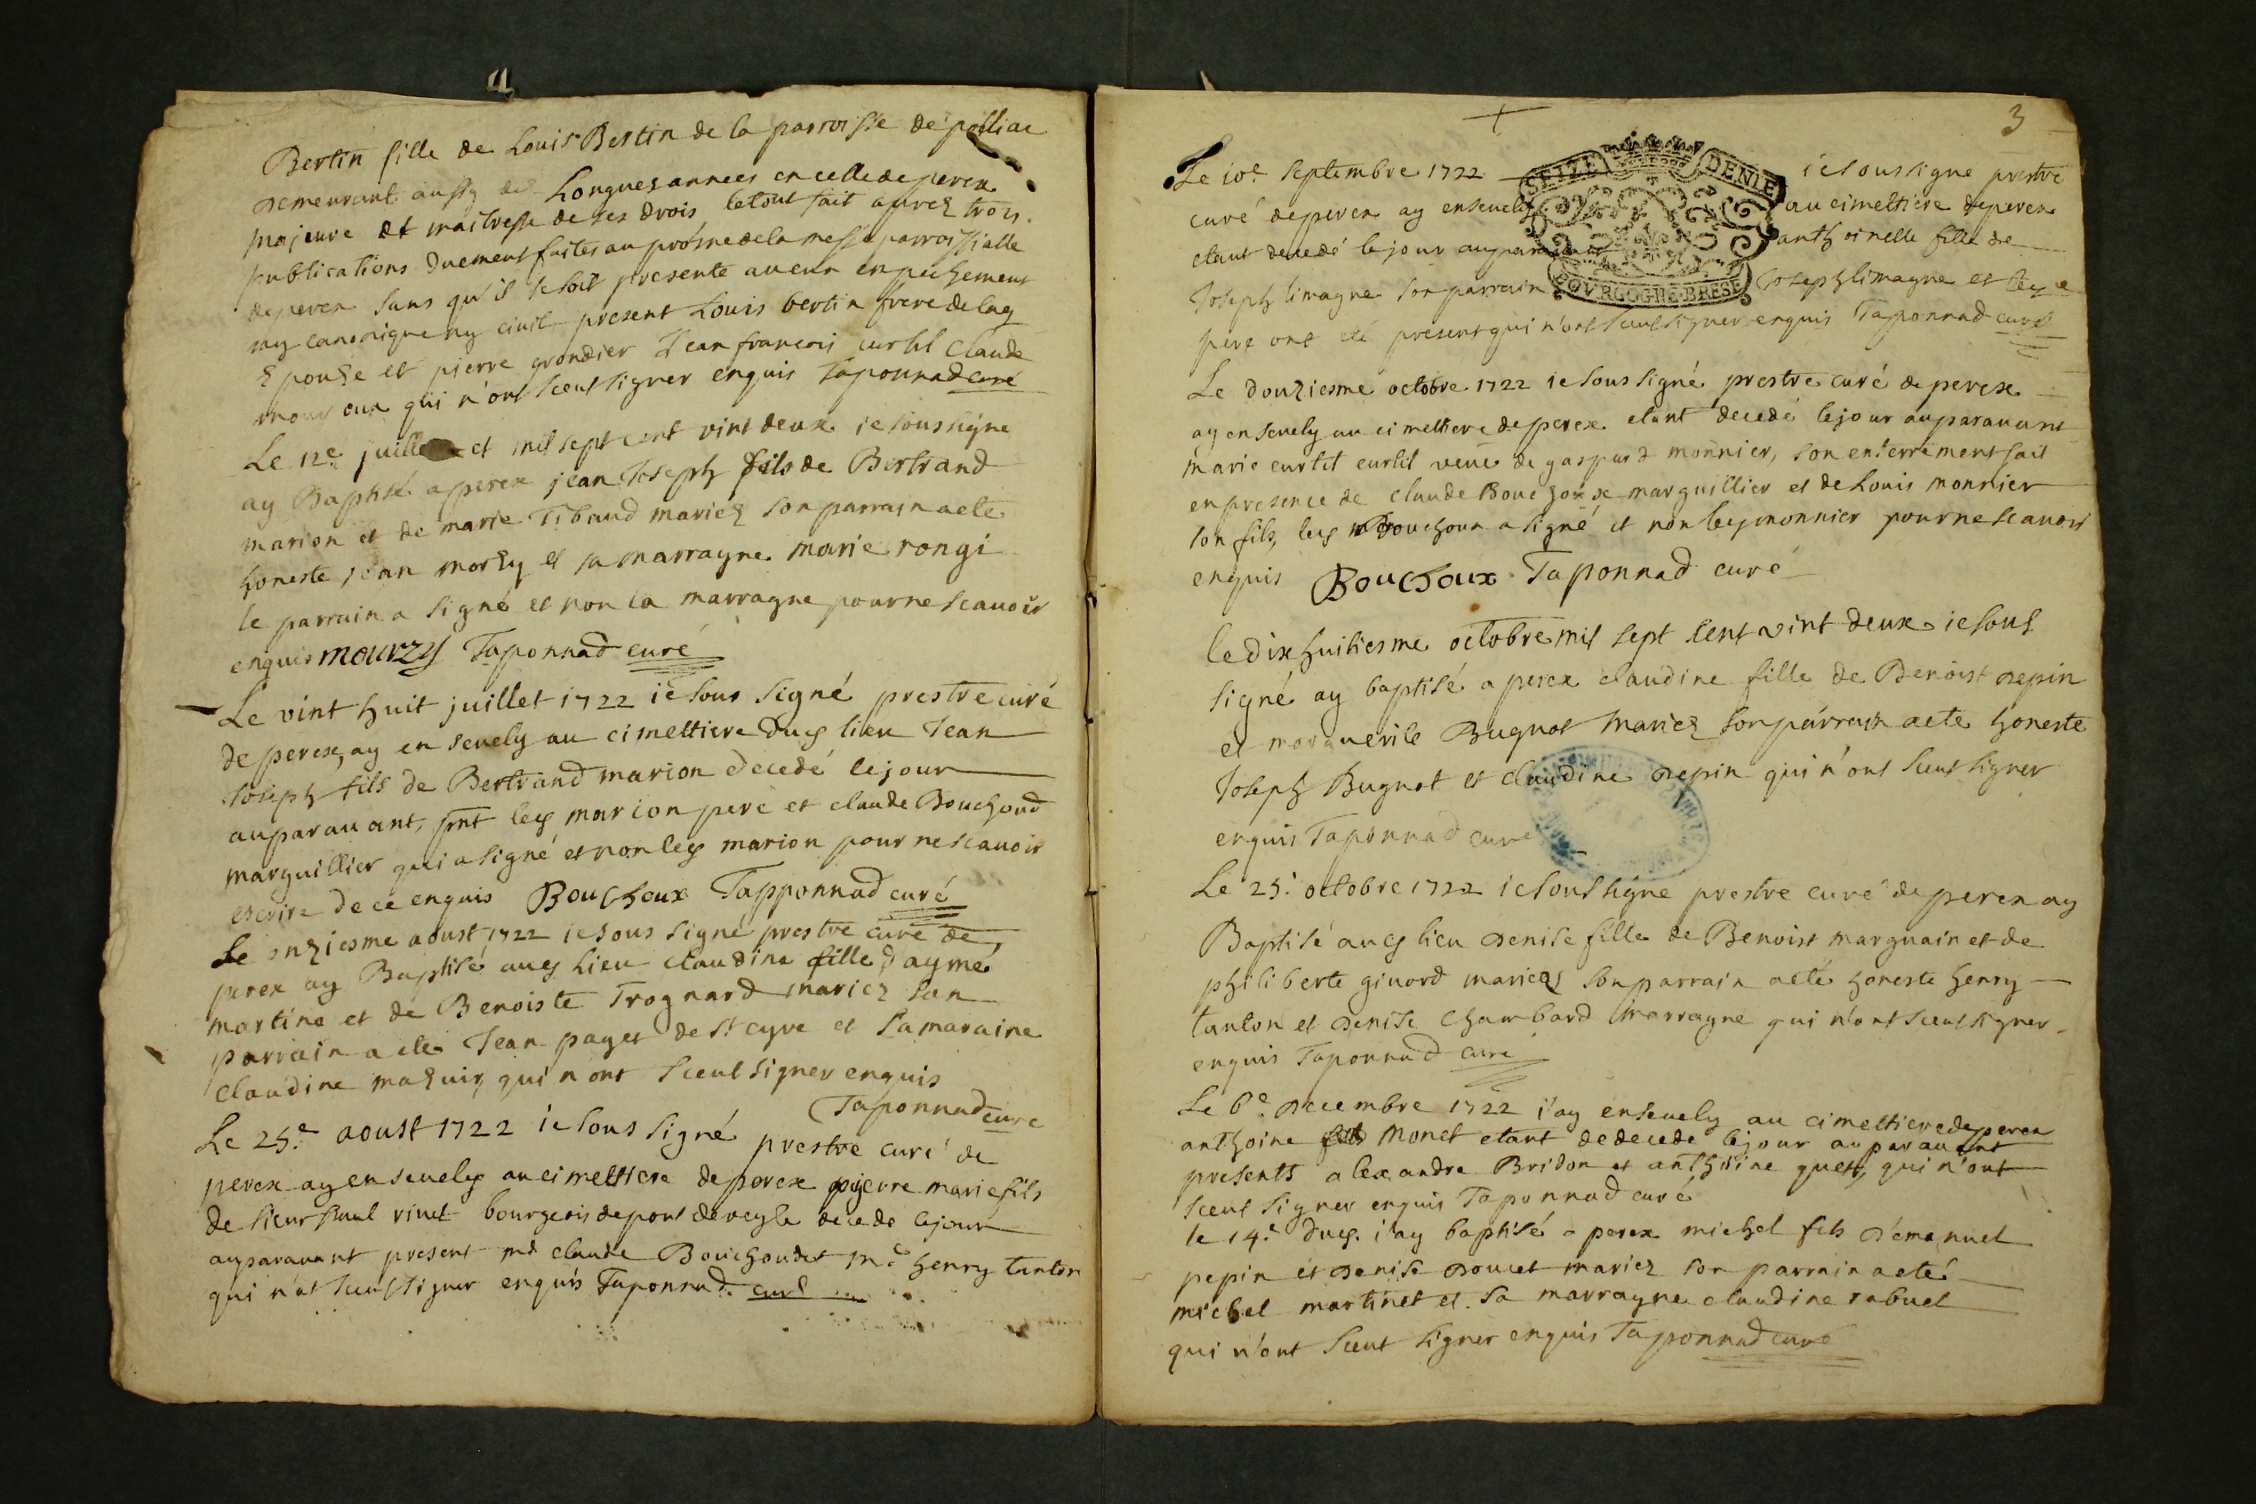 Bertin fille de Louis Bertin de la parroisse de polliac
demeurant aussy des Longues annees en celle de perex
majeure et maitresse de ses drois le tout fait apres trois
publications duement faites au prosne de la messe parroissialle
de perex sans qu'il se soit presenté aucun enpechement
ny canonique ny civil present Louis bertin frere de laq
Epouze et pierre grondier Jean francois curtil Claude
qui n'ont sceut signer enquis Taponnad curé
Le 12e juillet mil sept cent vint deux ie soussigne
ay Baptisé a perex jean Joseph fils de Bertrand
marion et de marie Tibaud mariez son parrain a eté
honeste jean morzy et sa marrayne marie rongi
le parrain a signé et non la marragne pour ne scavoir
enquis mourzy Taponnad curé
Le vint huit juillet 1722 ie sous signé prestre curé
de perex, ay en sevely au cimettiere duq lieu Jean
Joseph fils de Bertrand marion decedé le jour
auparavant, pnt leq marion pere et claude Bouchoud
marguillier qui a signé et non leq marion pour ne scavoir
escrire de ce enquis Bouchoux Tapponnad curé
Le onziesme aoust 1722 ie sous signé prestre curé de
perex ay Baptisé auq Lieu claudine fille d'aymé
martine et de Benoiste Trognard mariez son
parrain a eté Jean pages de st cyre et sa maraine
claudine mazuir, qui n ont sceut signer enquis
Taponnad curé
Le 25e aoust 1722 ie sous signé prestre curé de
perex ay ensevely au cimettiere de perex pierre marie fils
de sieur vivet bourgeois de pont de veyle decedé le jour
auparavant present md claude Bouchoud et mc henry tanton
qui n'ot sceut signer enquis Taponnad curé
3
SEIZE DENIE
BOVRGOGNE BRESE
Le 10e Septembre 1722 ie sous signe prestre
curé de perex ay ensevely au cimettiere de perex
etant decedé le jour auparavant anthoinette fille de
Joseph limagne son parrain Joseph limagne et
pere ont eté present qui n'ont sceut signer enquis Taponnad curé
Le douziesme octobre 1722 ie sous signé prestre curé de perex
ay en sevely au cimettiere de perex etant decedé le jour auparavant
marie curtet curtil veuve de gaspard monnier, son enterrement fait
en presence de claude Bouchoux marguillier et de Louis monnier
son fils, leq Bouchoux a signé et non leq monnier pour ne scavoir
enquis Bouchoux Taponnad curé
le dix huitiesme octobre mil sept Cent vint deux ie sous
signé ay baptisé a perex claudine fille de Benoist pepin
et marguerite Bugnot mariez son parrain a eté honeste
Joseph Bugnot et claudine pepin qui n'ont sceut signer
enquis Taponnad curé
Le 25e octobre 1722 ie sous signe prestre curé de perex ay
Baptisé auq lieu denise fille de Benoist marguain et de
philiberte givord mariez son parrain a eté honeste henry
tanton et denise chambard marrayne qui n'ont sceut signer
enquis Taponnad curé
Le 6e decembre 1722 i'ay ensevely au cimettiere de perex
anthoine Monet etant de decede le jour auparavant
presents alexandre Bridon et anthoine guet, qui n'ont
sceut signer enquis Taponnad curé
le 14e duq. i'ay baptisé a perex michel fils d'émanuel
pepin et denise doucet mariez son parrain a eté
michel martinet et sa marrayne claudine rabuel
qui n'ont sceut signer enquis Taponnad curé